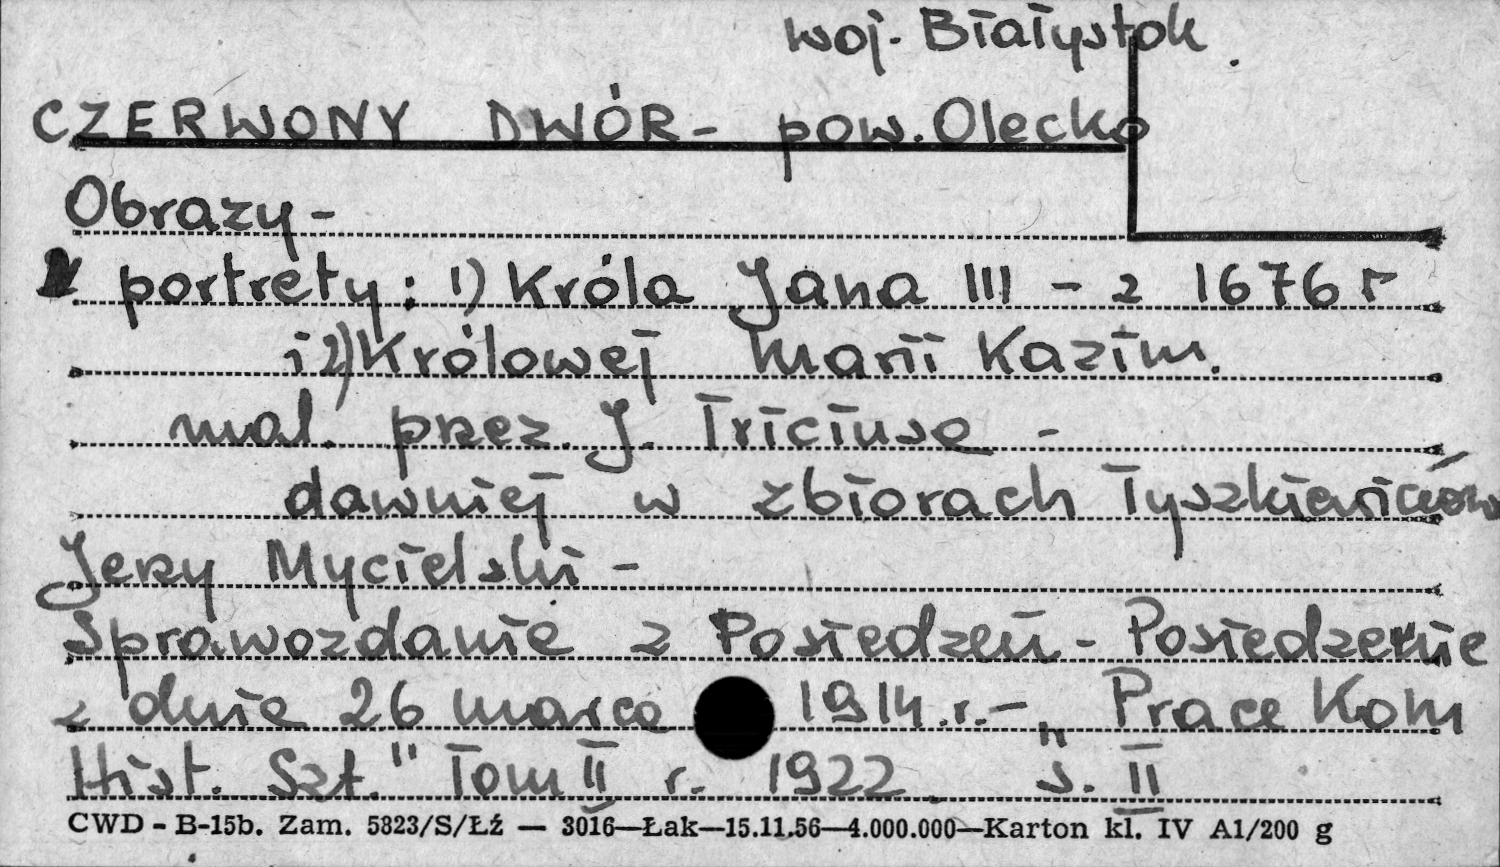 woj. Białystok.
CZERWONY DWÓR - pow. Olecko
Obrazy -
portrety: 1) Króla Jana III - z 1676 r
i 2) Królowej Marii Kazim.
mal. przez J. Triciusa -
dawniej w zbiorach Tyszkiewiczów
Jerzy Mycielski -
Sprawozdanie z Posiedzeń - Posiedzenie
z dnia 26 marca 1914 r. - „Prace Kom
Hist. Szt." Tom II r. 1922 s. II
CWD - B-15b. Zam. 5823/S/Łź — 3016—Łak—15.11.56—4.000.000—Karton kl. IV A1/200 g